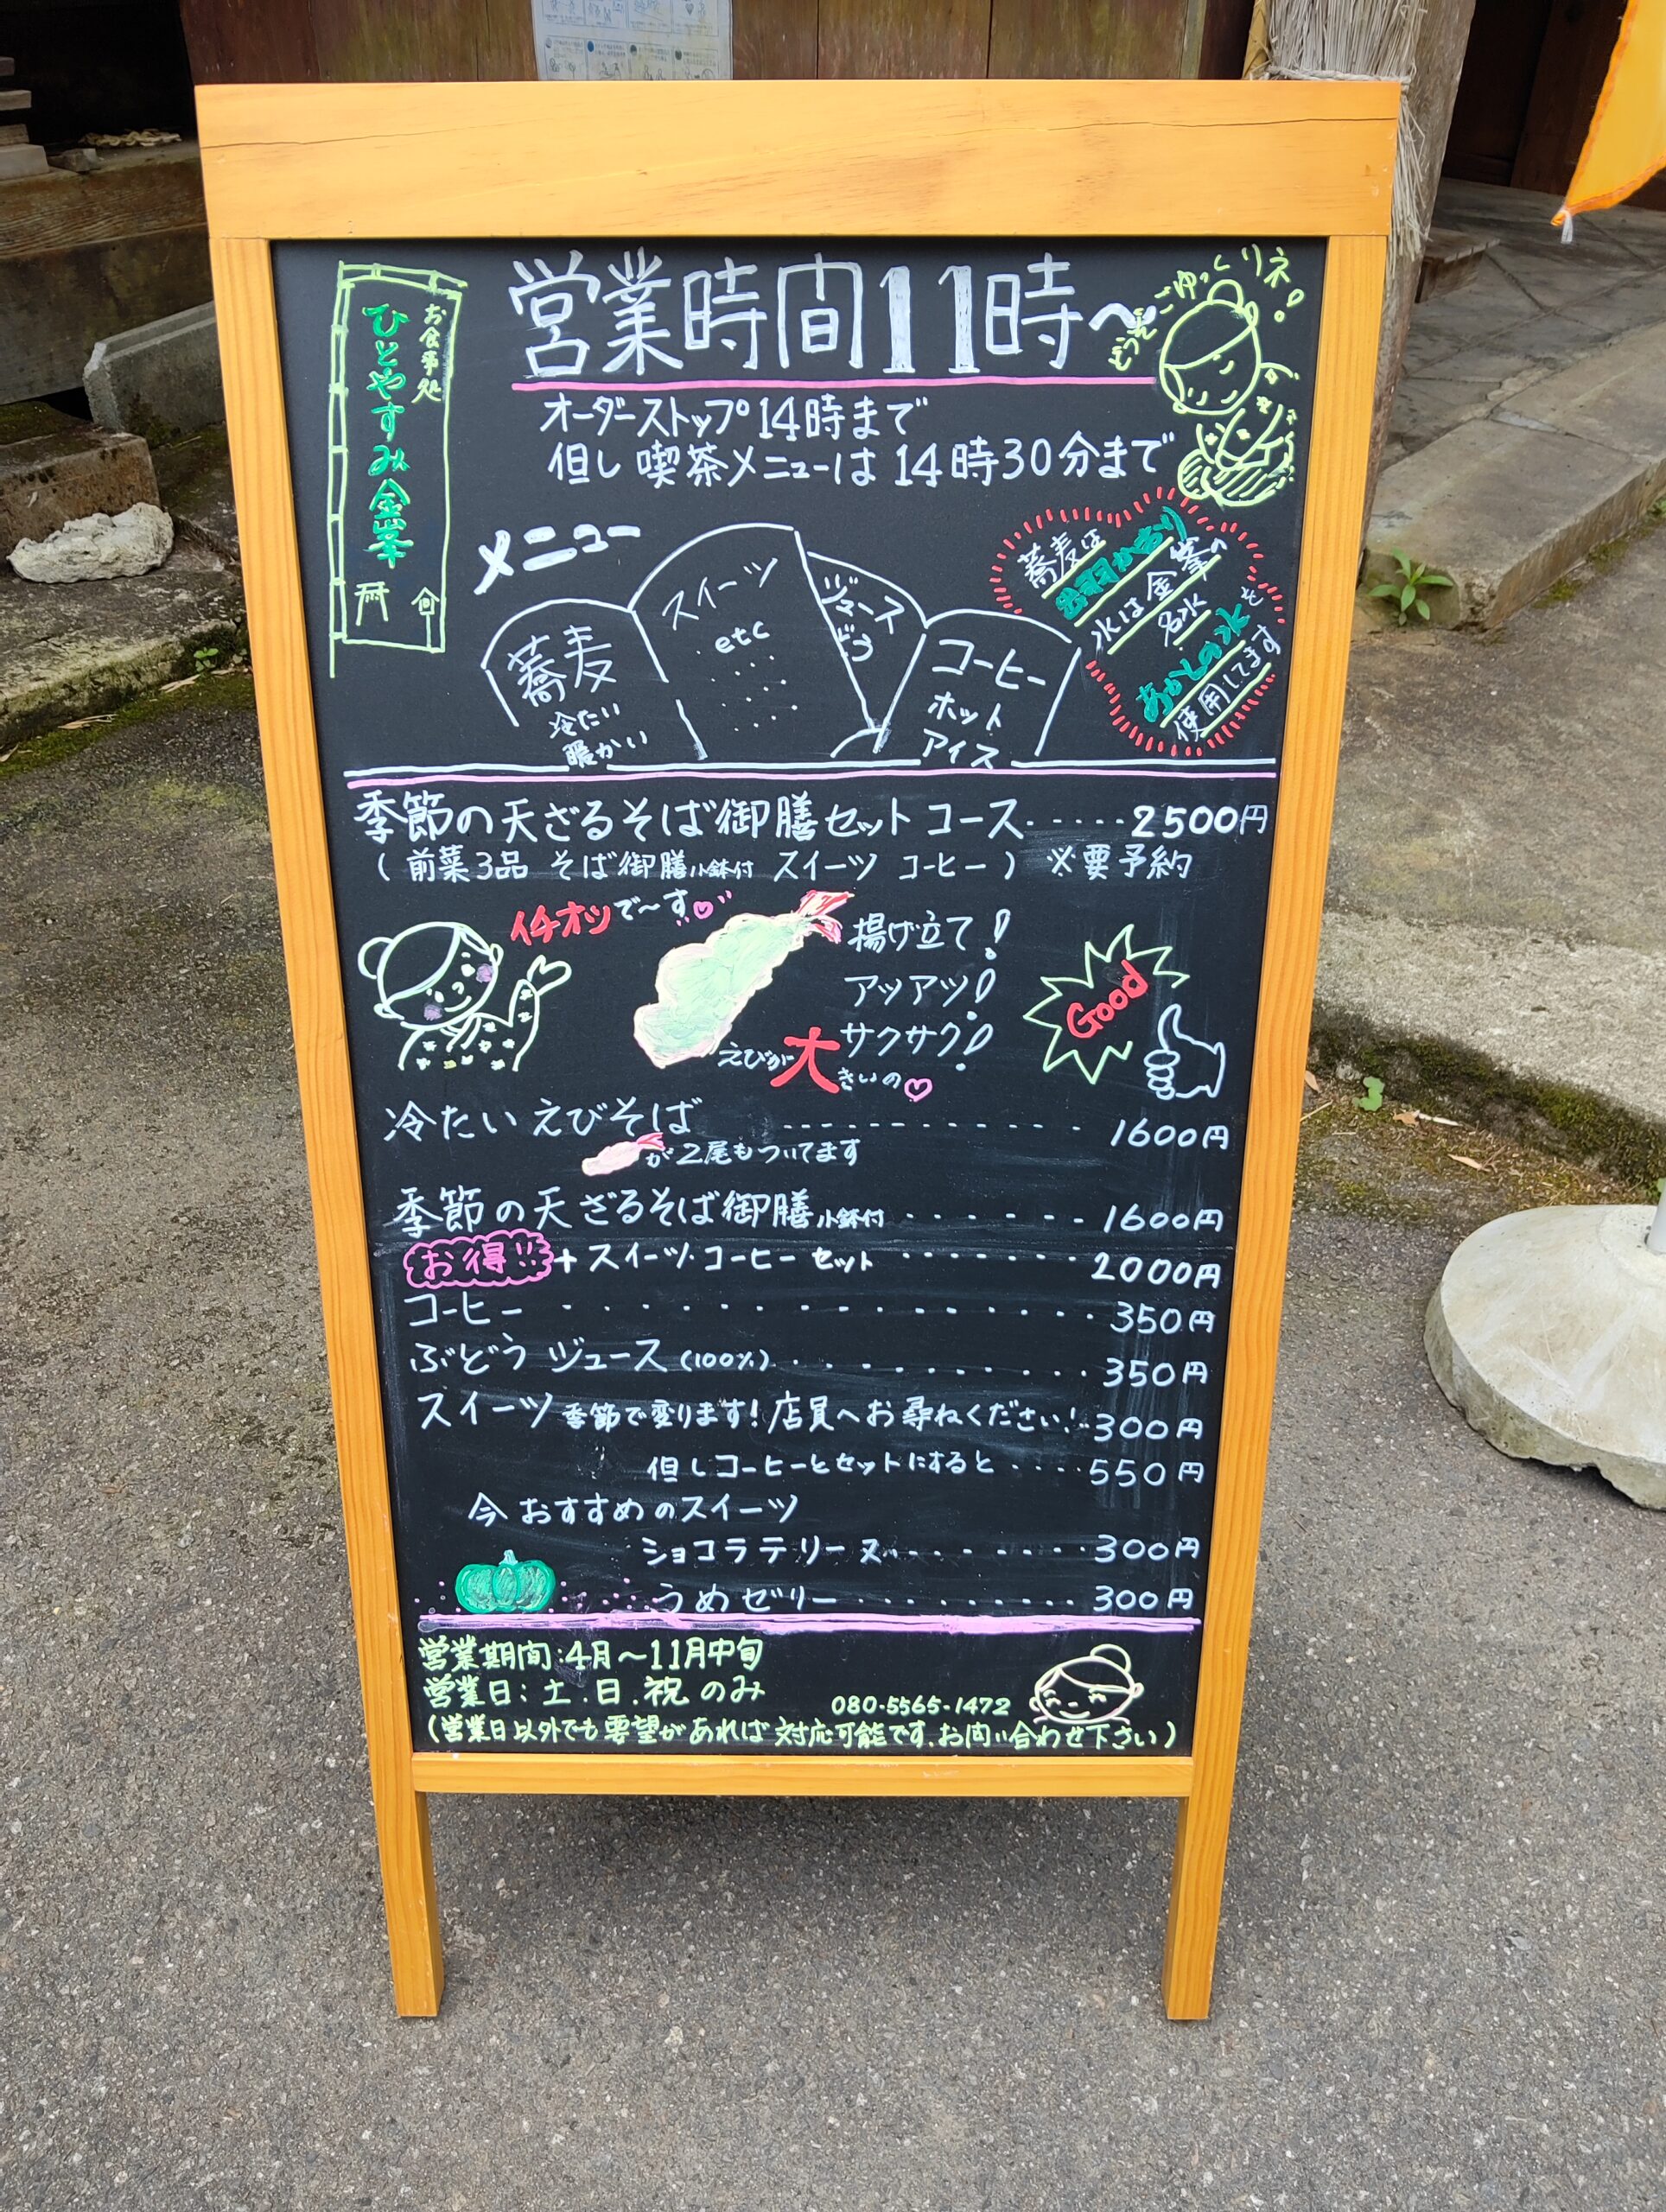 お食事処
ひとやすみ金峯
営業時間11時〜
どうぞごゆっくりネ!
オーダーストップ14時まで
但し喫茶メニューは14時30分まで
メニュー
蕎麦
冷たい
暖かい
スイーツ
etc
ジュース
ぶどう
コーヒー
ホット
アイス
蕎麦は
出羽かおり
水は金峯の
名水
あかとの水を
使用してます
季節の天ざるそば御膳セットコース・・・・・2500円
(前菜3品 そば御膳小鉢付 スイーツ コーヒー) ※要予約
イチオシで〜す♡
揚げ立て!
アツアツ!
サクサク!
えびが大きいの♡
Good
冷たいえびそば ----------- 1600円
が2尾もついてます
季節の天ざるそば御膳小鉢付 ・・・・・・・ 1600円
お得!! +スイーツ・コーヒーセット ・・・・・・・ 2000円
コーヒー ・・・・・・・・・・・・・・ 350円
ぶどうジュース(100%)・・・・・・・・・ 350円
スイーツ 季節で変ります!店員へお尋ねください!--300円
但しコーヒーとセットにすると ・・・・550円
今おすすめのスイーツ
ショコラテリーヌ・・・・・・・・300円
うめゼリー ・・・・・・・・・300円
営業期間:4月〜11月中旬
営業日:土.日.祝のみ
080-5565-1472
(営業日以外でも要望があれば対応可能です.お問い合わせ下さい)